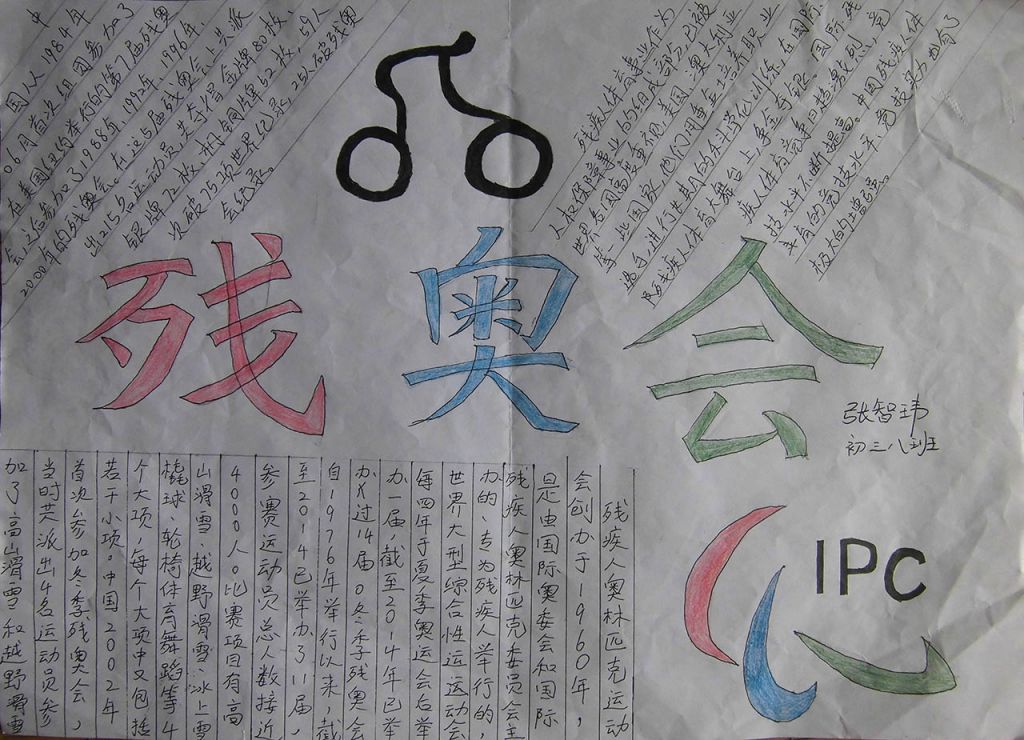 中
国人1984年
6月首次组团参加了
在美国纽约举行的第7届残奥
会之后参加了1988年、1992年、1996年、
2000年的残奥会。在这5届残奥会上共派
出215名运动员共夺得金牌80枚、
银牌72枚、铜牌52枚,59人
次破75项世界纪录,25人破残奥
会纪录。
残疾人体育事业作为
人权保障事业的组成部分已被
世界各国高度重视。美国、澳大利亚
等一些国家,他们用重金培养职业
选手,进行惊人的科学化训练,在国际
残疾人体育大舞台上争金夺银。国际残
疾人体育竞争日趋激烈,竞
技水平不断提高。中国残疾人体
育的竞技水平、竞技实力也有了
极大的增强。
残奥会
张智玮
初三八班
IPC
残疾人奥林匹克运动
会创办于1960年,
是由国际奥委会和国际
残疾人奥林匹克委员会主
办的、专为残疾人举行的,
世界大型综合性运动会
每四年于夏季奥运会后举
办一届,截至2014年已举
办过14届。冬季残奥会
自1976年举行以来,截
至2014已举办了11届,
参赛运动员总人数接近
4000人。比赛项目有高
山滑雪、越野滑雪、冰上雪
橇球、轮椅体育舞蹈等4
个大项,每个大项中又包括
若干小项。中国2002年
首次参加冬季残奥会,
当时共派出4名运动员参
加了高山滑雪和越野滑雪